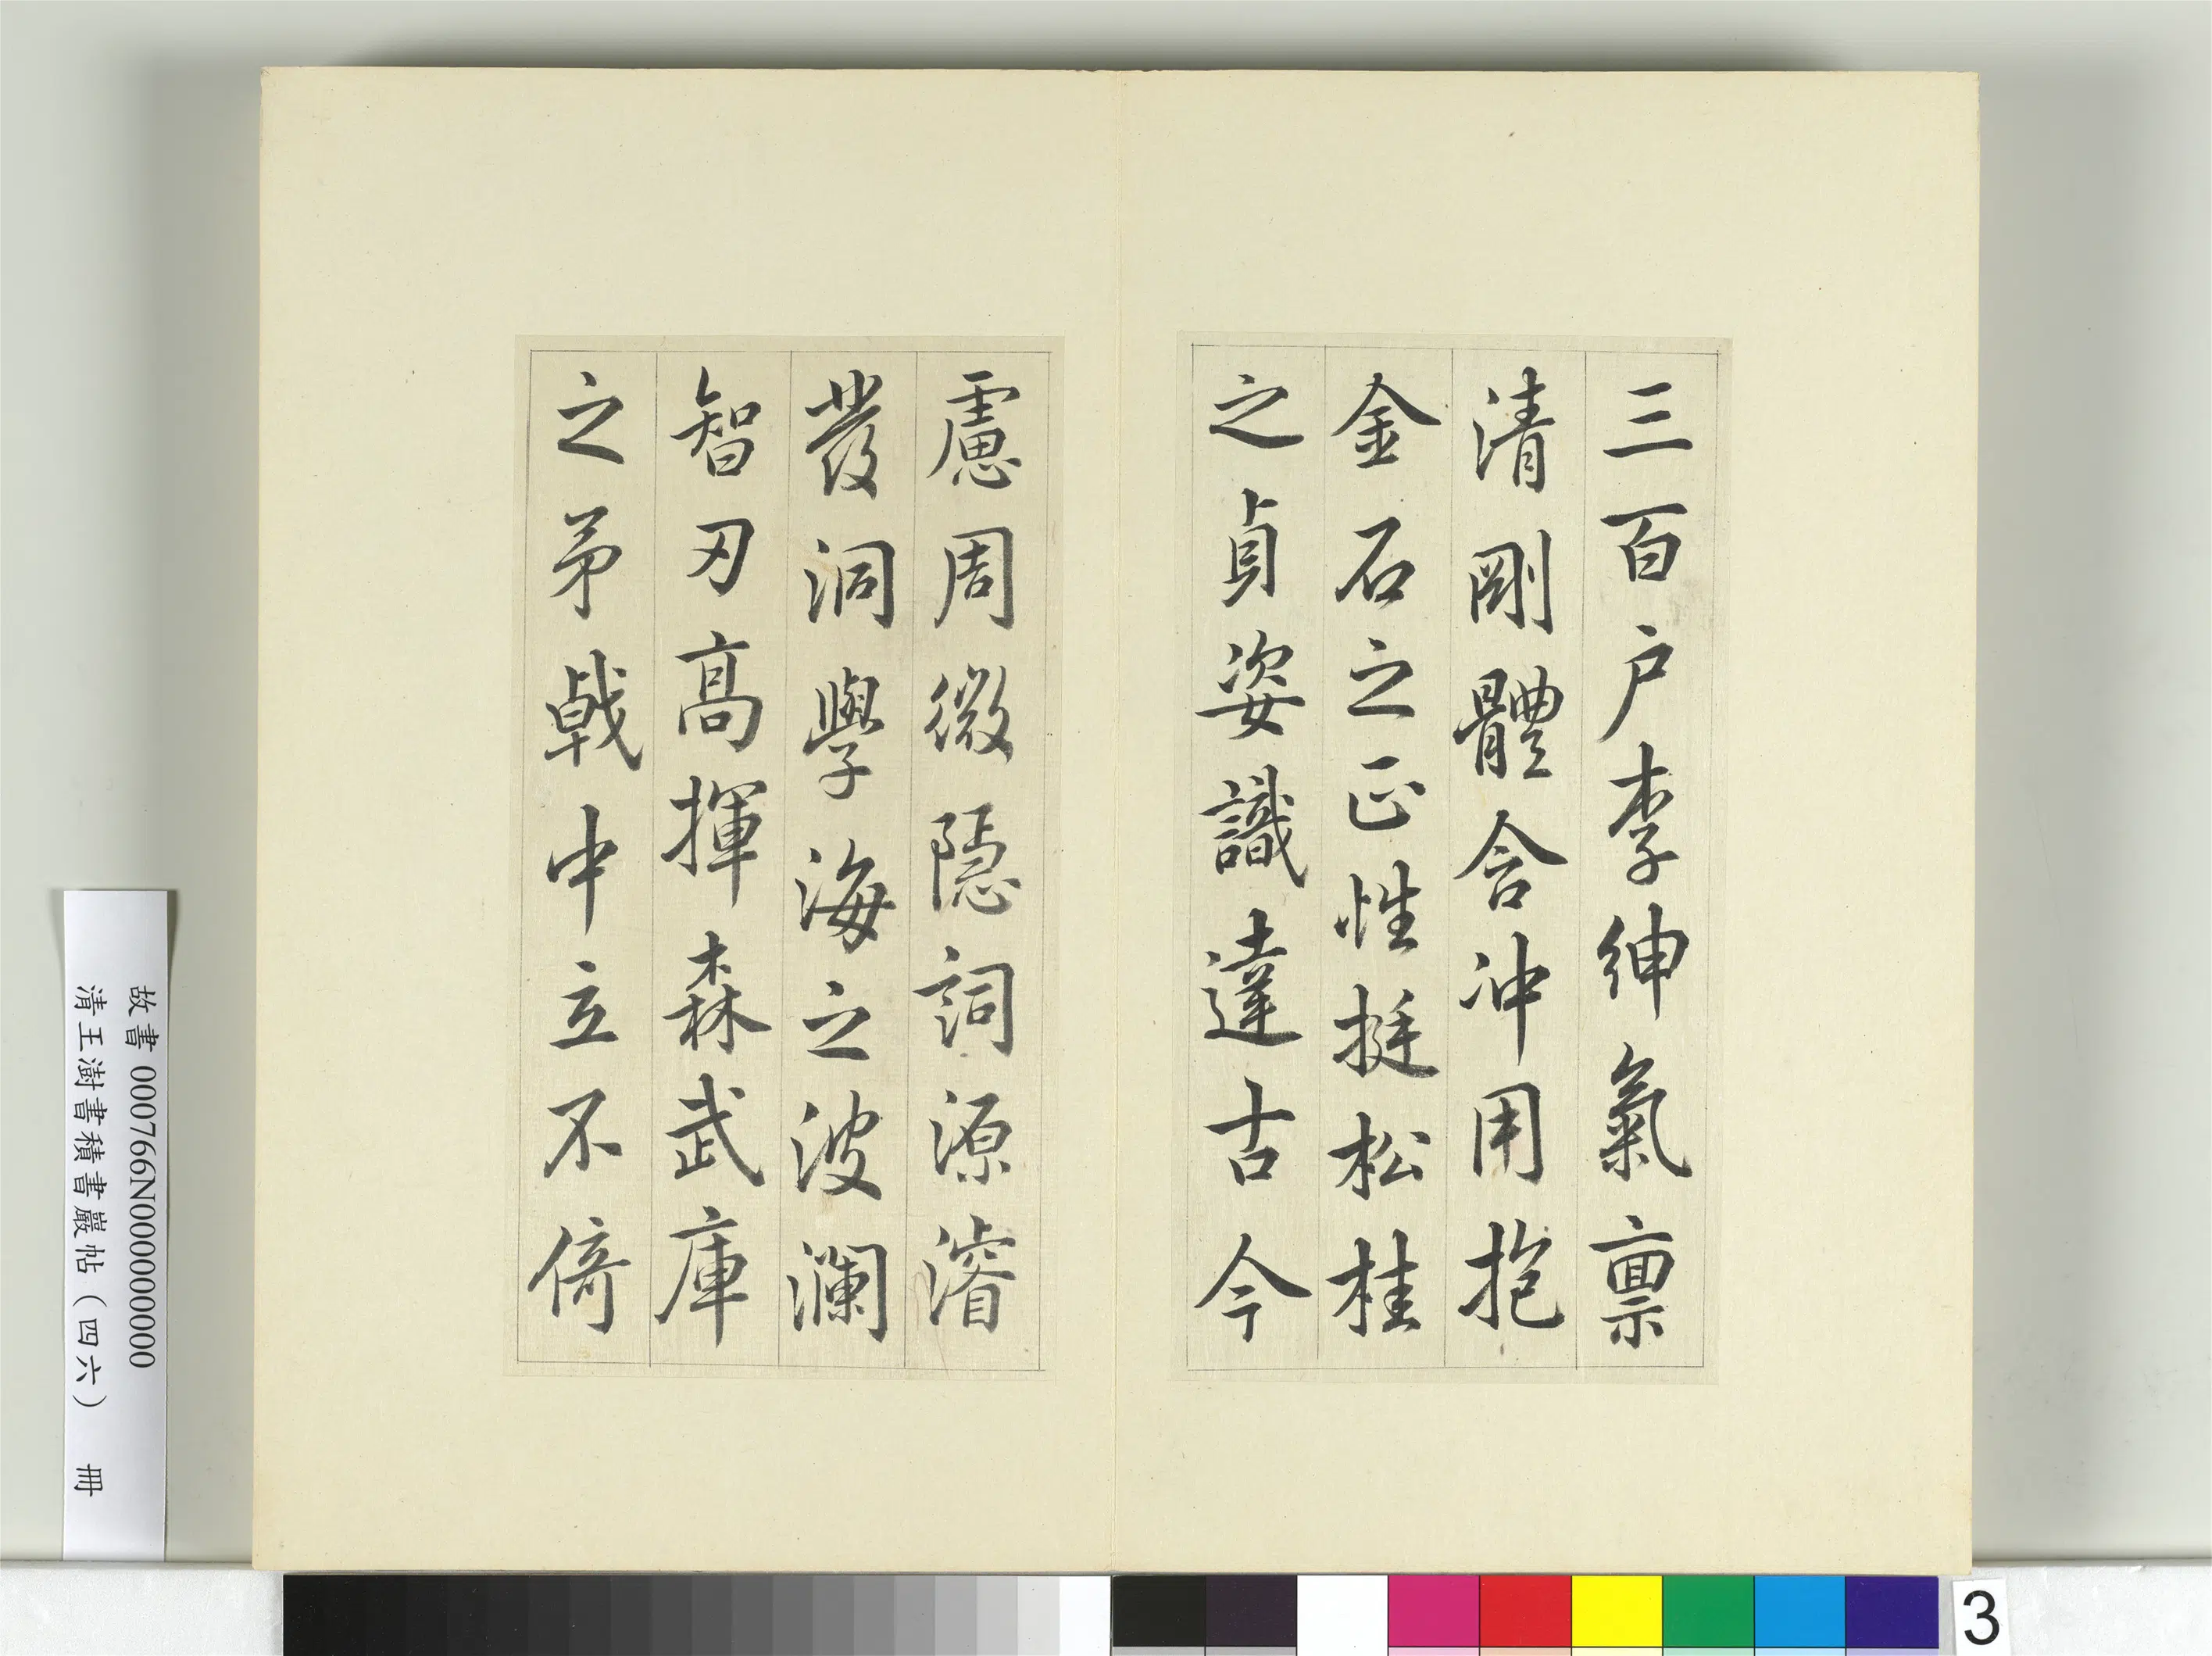 三百户李紳氣禀
清剛體含冲用抱
金石之正性挺松桂
之貞姿識達古今
慮周微隱詞源濬
發洞學海之波瀾
智刃高揮森武庫
之矛戟中立不倚
故書 000766N000000000
清王澍書積書巖帖(四六) 冊
3